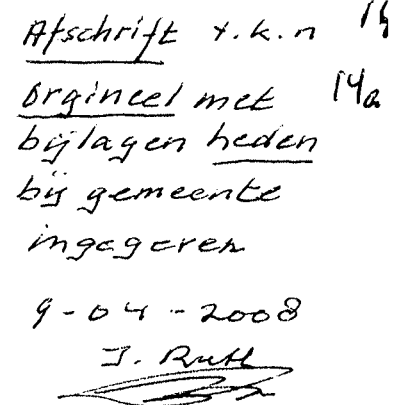 Afschrift t.k.n 14
Orgineel met 14a
bijlagen heden
bij gemeente
ingegeven
9-04-2008
J. Ruth